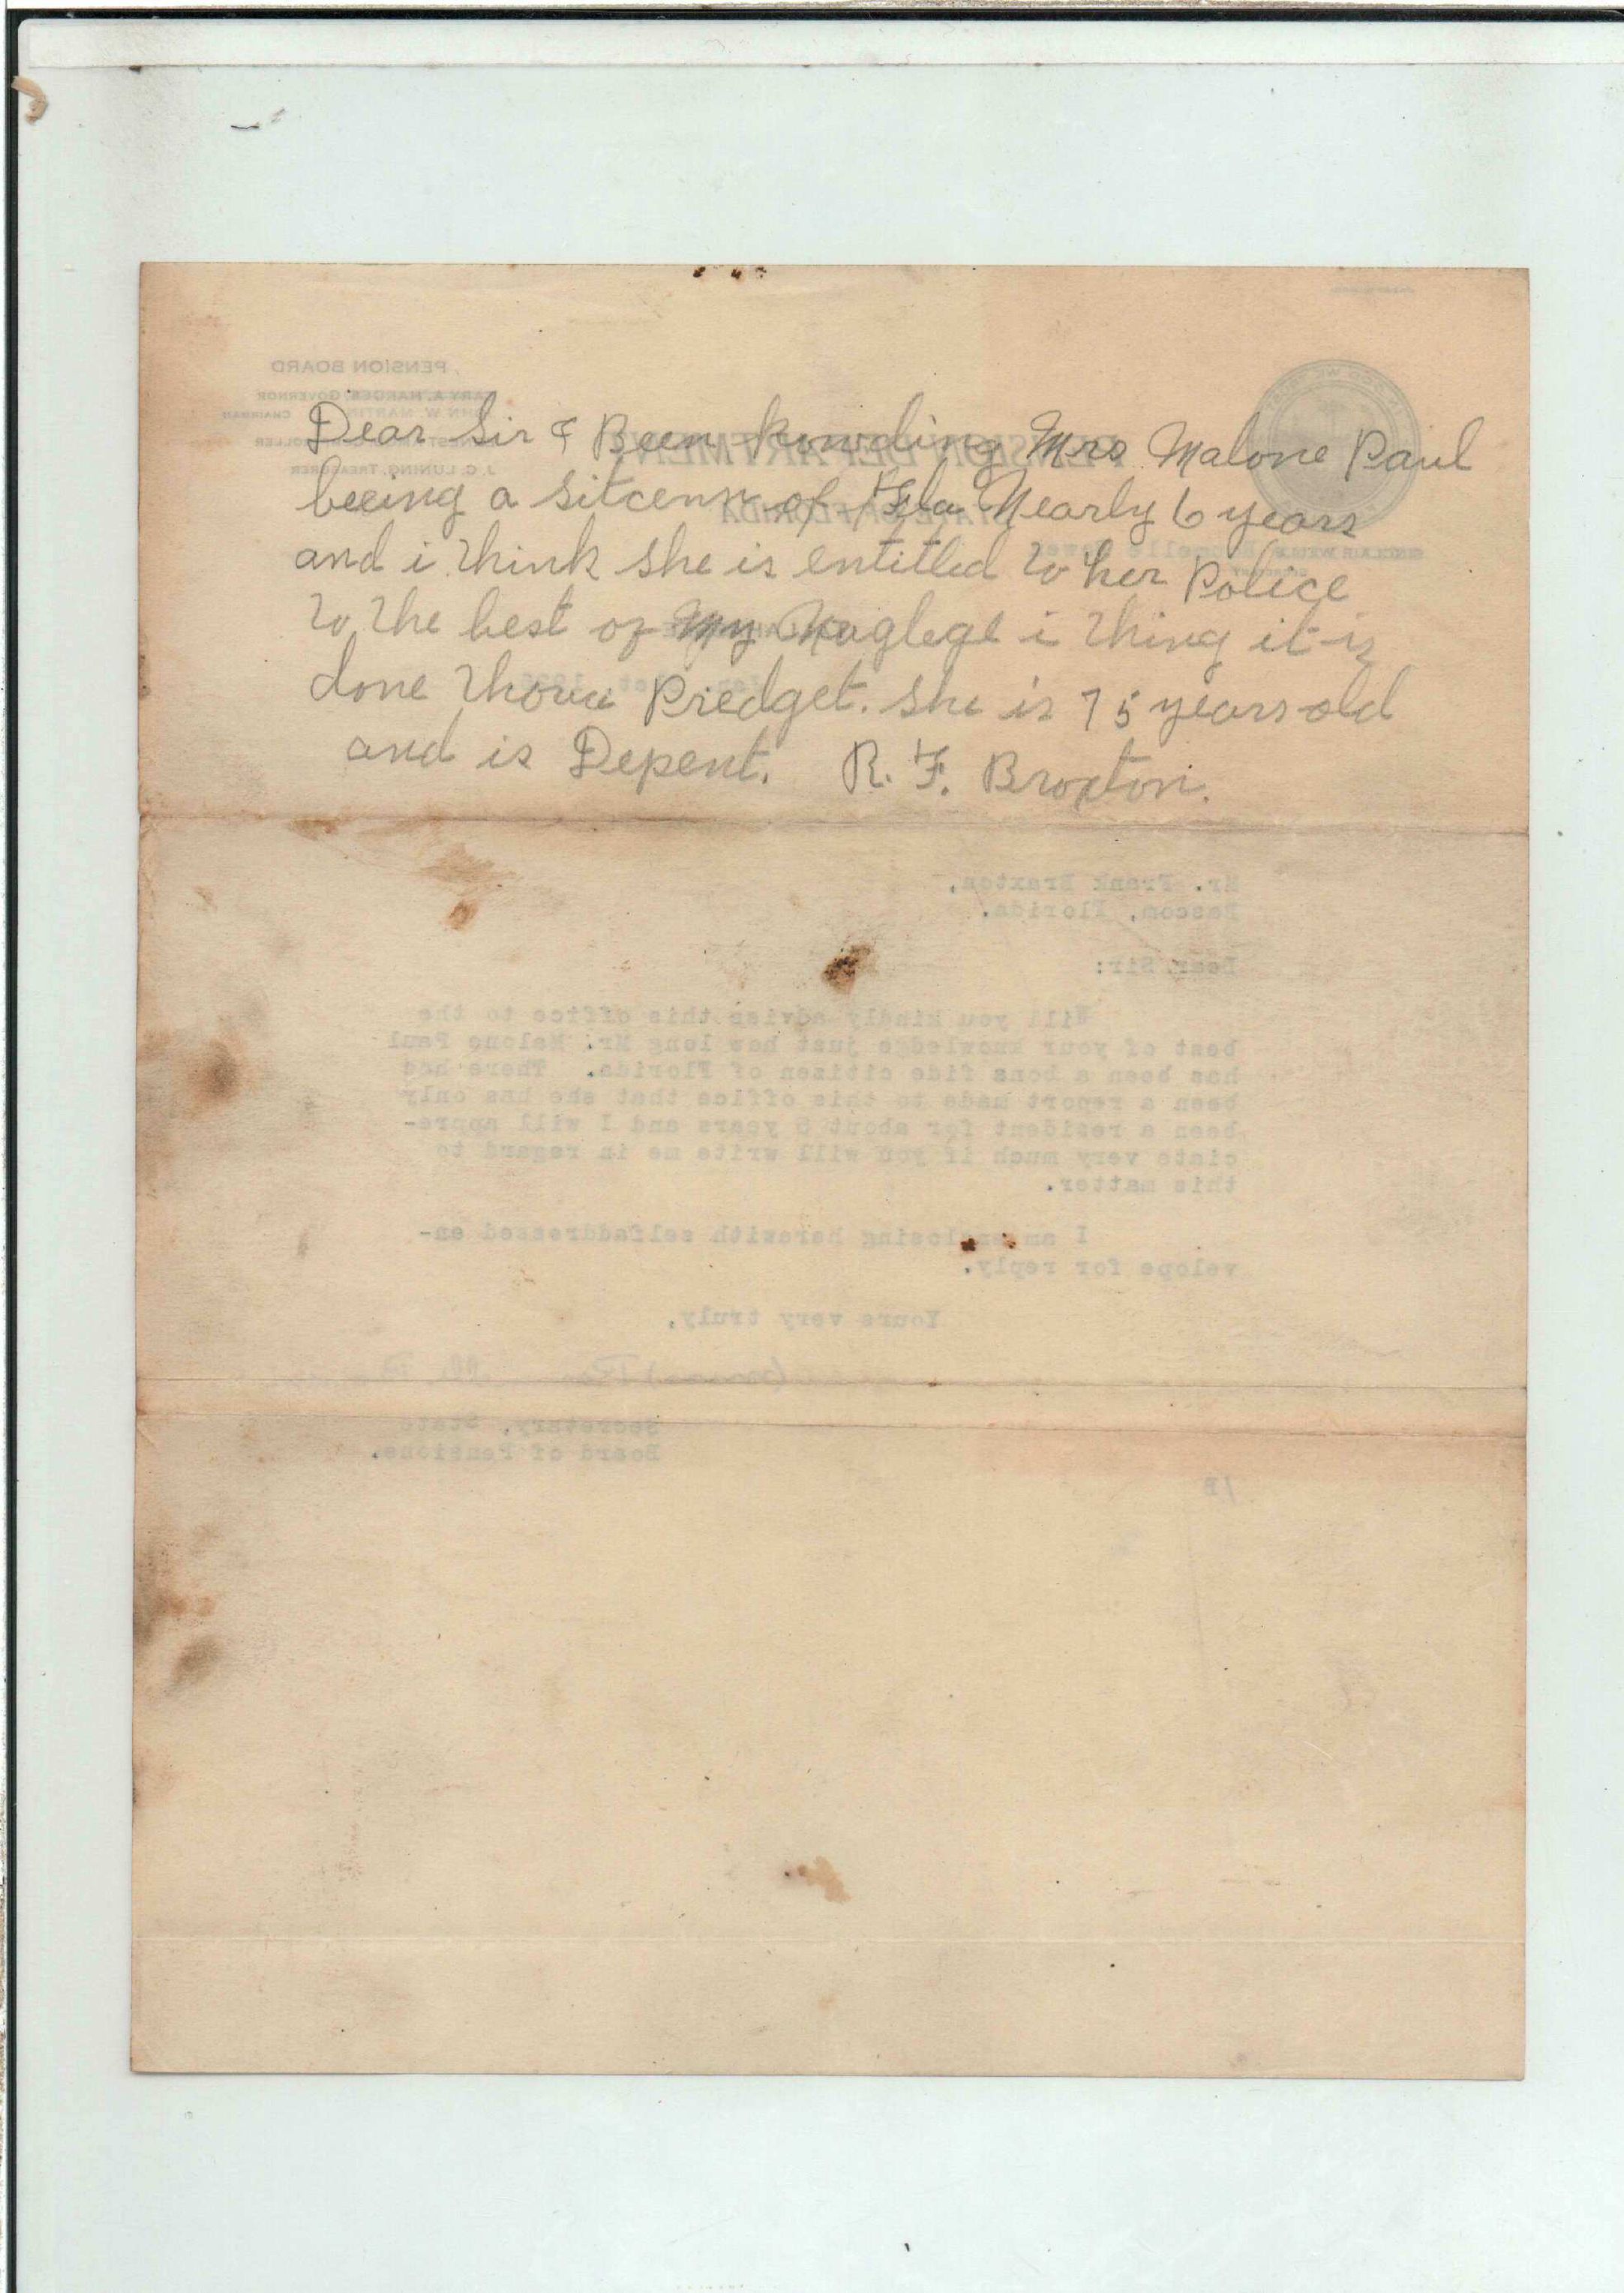 Dear Sir & Been knowding Mrs Malone Paul
beeing a sitcenn of Fla Nearly 6 years
and i think she is entitled to her Police
to the best of My Nuglege i thing it is
done Predget. she is 75 years old
and is Depent. R. F. Broxton.
PENSION BOARD
CARY A. HARDEE, GOVERNOR
JOHN W. MARTIN CHAIRMAN
J. C. LUNING, TREASURER
PENSION DEPARTMENT
STATE OF FLORIDA
Mr. Frank Braxton,
Bascom, Florida.
Dear Sir:
Will you kindly advise this office to the
best of your knowledge just how long Mr. Malone Paul
has been a bona fide citizen of Florida. There has
been a report made to this office that she has only
been a resident for about 5 years and I will appre-
ciate very much if you will write me in regard to
this matter.
I am enclosing herewith selfaddressed en-
velope for reply.
Yours very truly,
Secretary, State
Board of Pensions.
/B